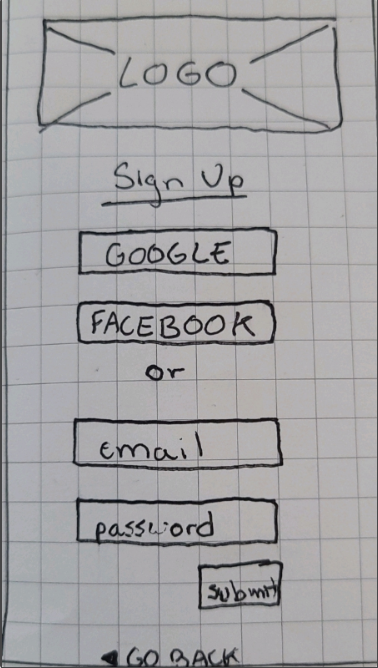 LOGO
Sign Up
GOOGLE
FACEBOOK
or
email
password
submit
GO BACK